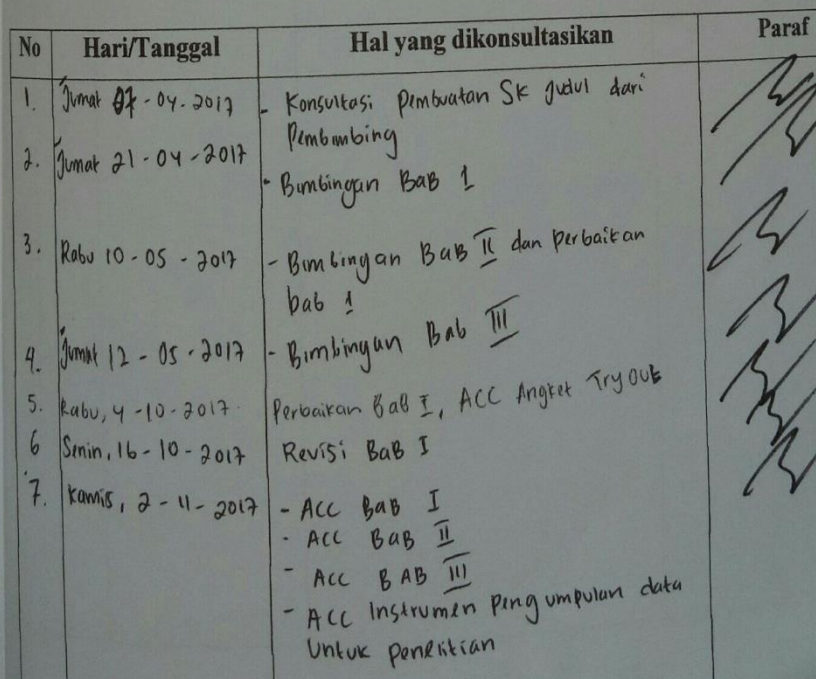 No Hari/Tanggal Hal yang dikonsultasikan Paraf
1. Jumat 07-04-2017 - Konsultasi Pembuatan SK Judul dari
Pembimbing
2. Jumat 21-04-2017
- Bimbingan BAB 1
3. Rabu 10-05-2017 - Bimbingan BAB II dan Perbaikan
bab 1
4. Jumat 12-05-2017 - Bimbingan Bab III
5. Rabu, 4-10-2017. Perbaikan BaB I, ACC Angket TryOut
6 Senin, 16-10-2017 Revisi BaB I
7. Kamis, 2-11-2017 - ACC BaB I
- ACC BaB II
- ACC BAB III
- ACC Instrumen Pengumpulan data
Untuk penelitian